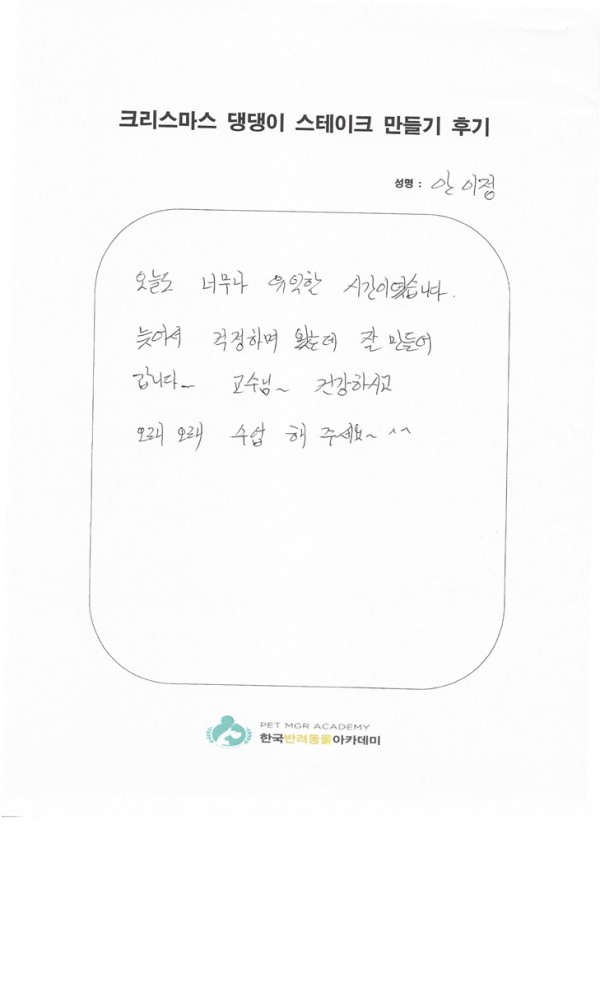 크리스마스 댕댕이 스테이크 만들기 후기
성명 : 안이정
오늘도 너무나 유익한 시간이였습니다.
늦어서 걱정하며 왔는데 잘 만들어
갑니다~ 교수님~ 건강하시고
오래 오래 수업 해 주세요~ ^^
PET MGR ACADEMY
한국반려동물아카데미